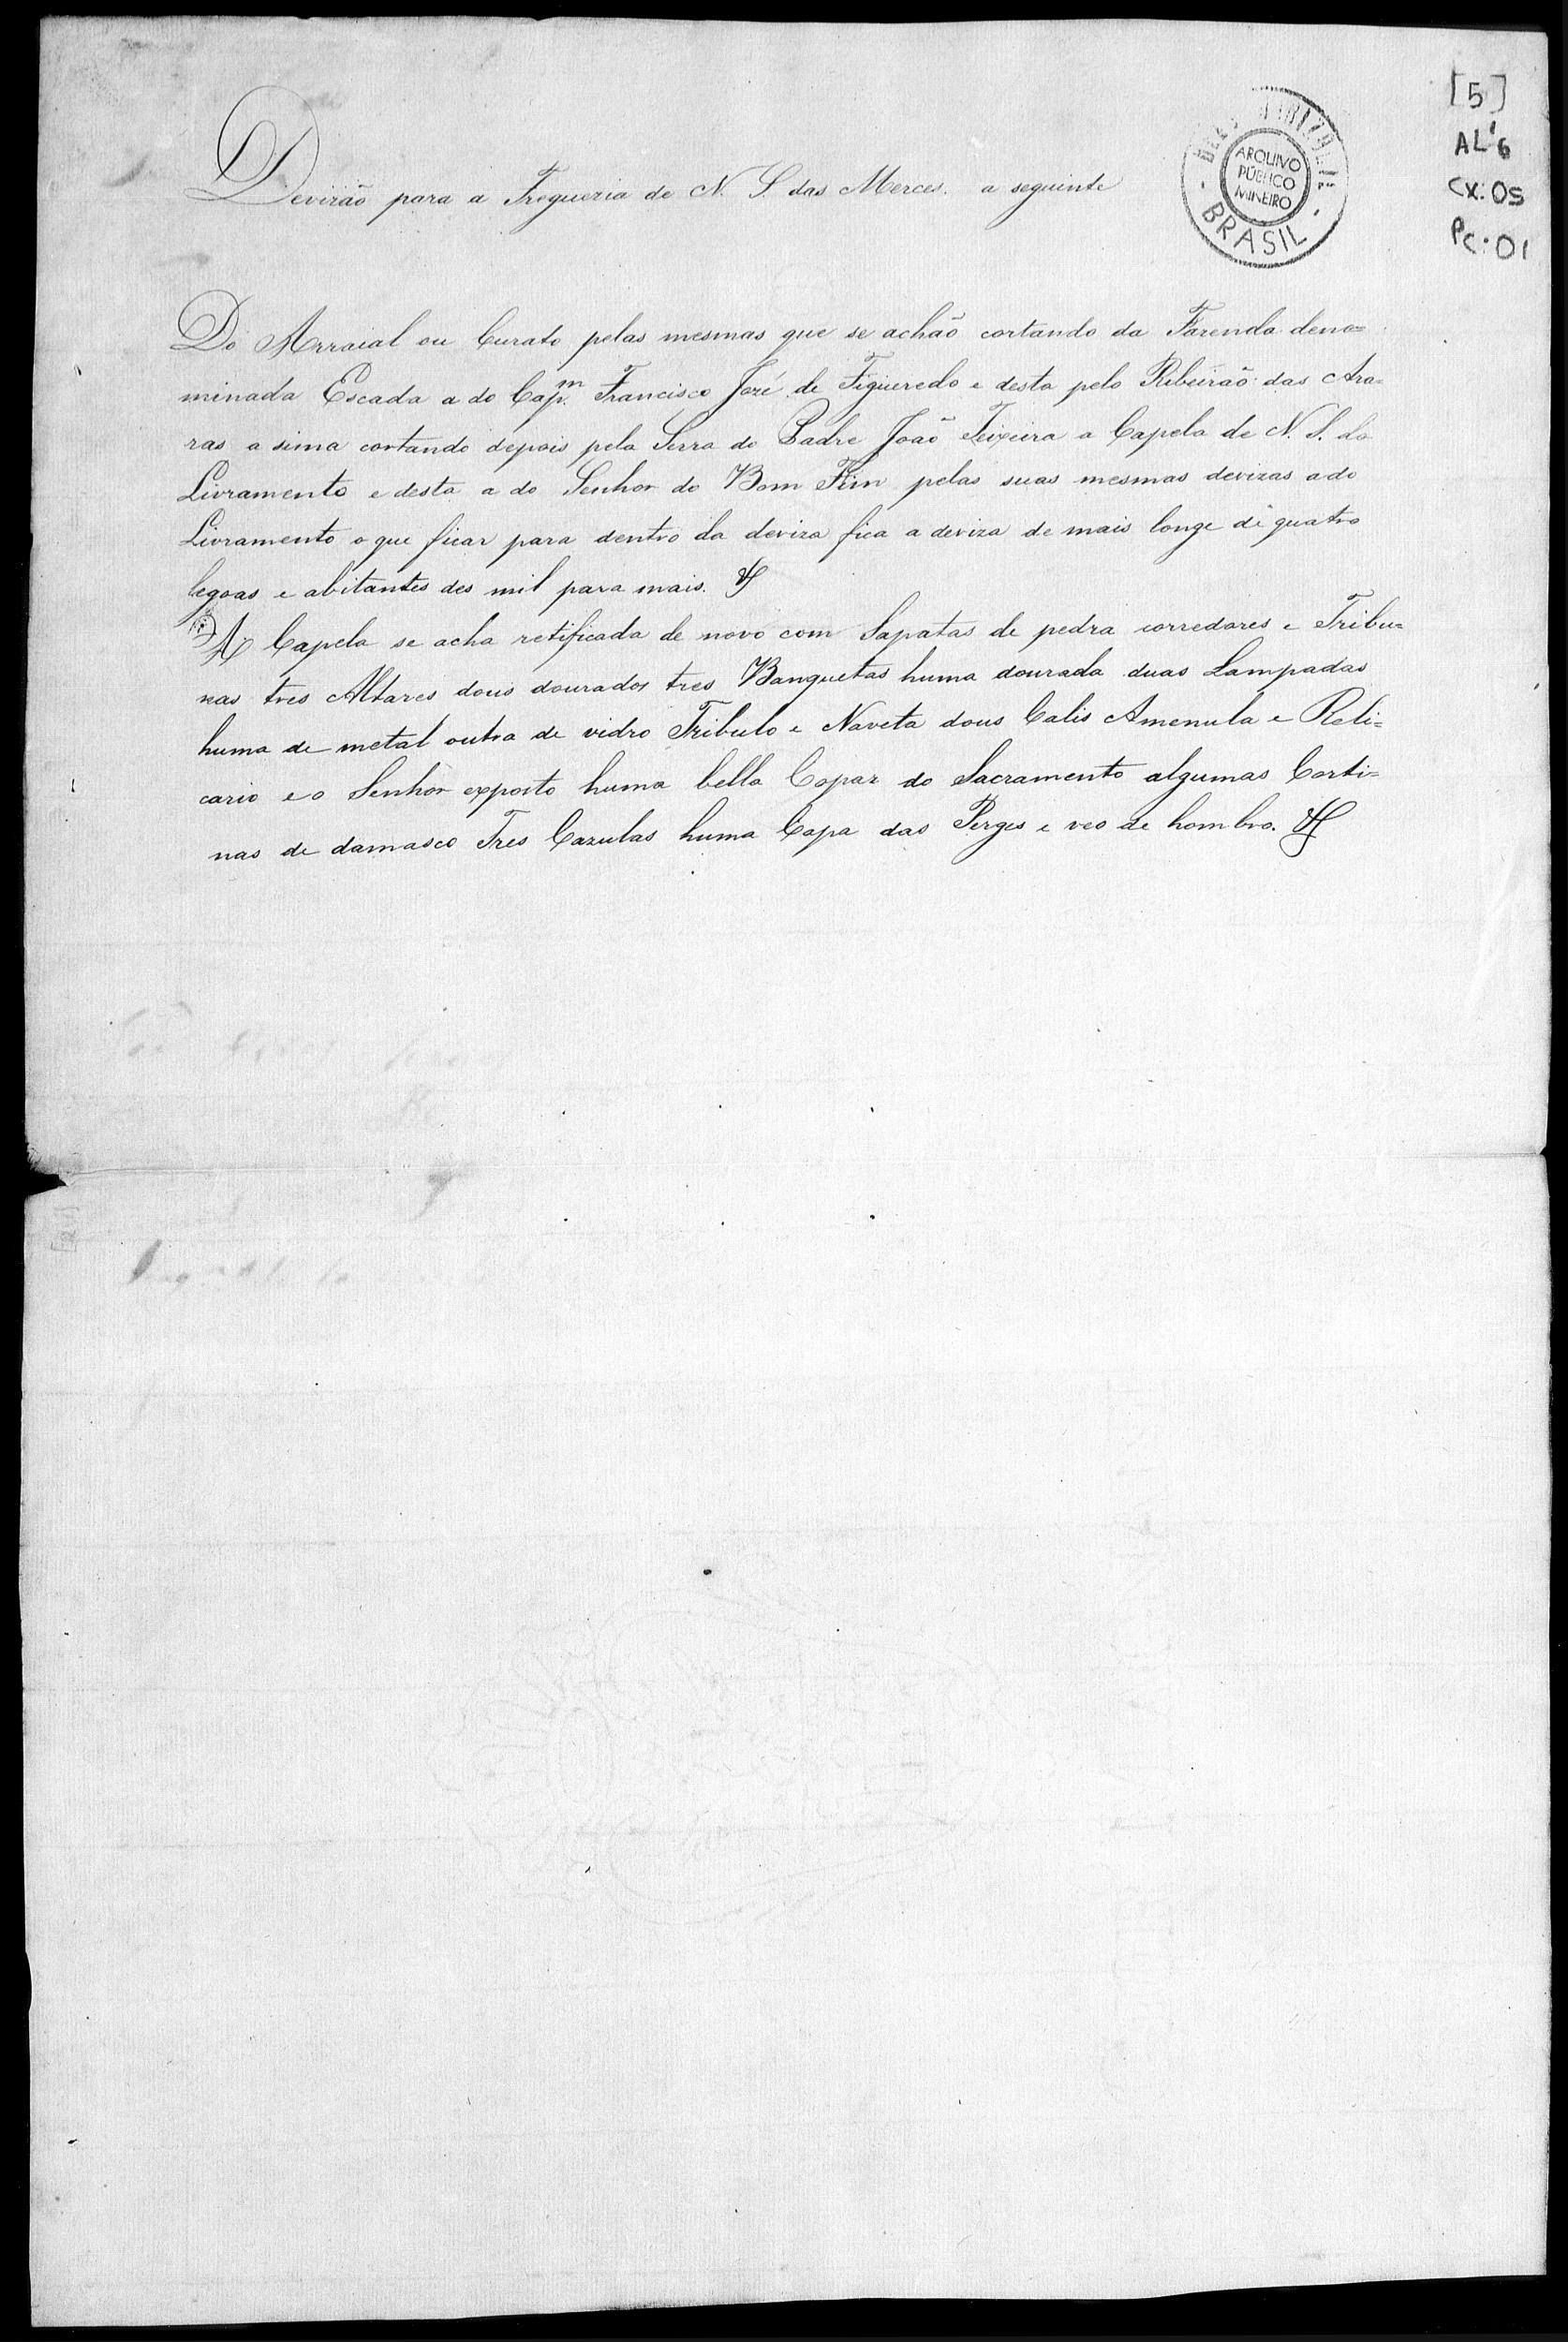 [5]
AL'6
CX: 05
PC: 01
BELO HORIZONTE
ARQUIVO
PÚBLICO
MINEIRO
- BRASIL -
Devizão para a Fregueria de N. S. das Merces. a seguinte
Do Arraial ou Curato pelas mesmas que se achão cortando da Fazenda deno=
minada Escada a do Cap.m Francisco Jozé de Figueredo e desta pelo Ribeirão das Ara=
ras a sima cortando depois pela Serra do Padre João Teixeira a Capela de N. S. do
Livramento e desta a do Senhor do Bom Fim pelas suas mesmas devizas a do
Livramento o que ficar para dentro da deviza fica a deviza de mais longe de quatro
legoas e abitantes des mil para mais.
A Capela se acha retificada de novo com Sapatas de pedra corredores e Tribu=
nas tres Altares dous dourados tres Banquetas huma dourada duas Lampadas
huma de metal outra de vidro Tribulo e Naveta dous Calis Amenula e Reli=
cario e o Senhor exposto huma bella Copaz do Sacramento algumas Corti=
nas de damasco Tres Cazulas huma Capa das Perges e veo de hombro.